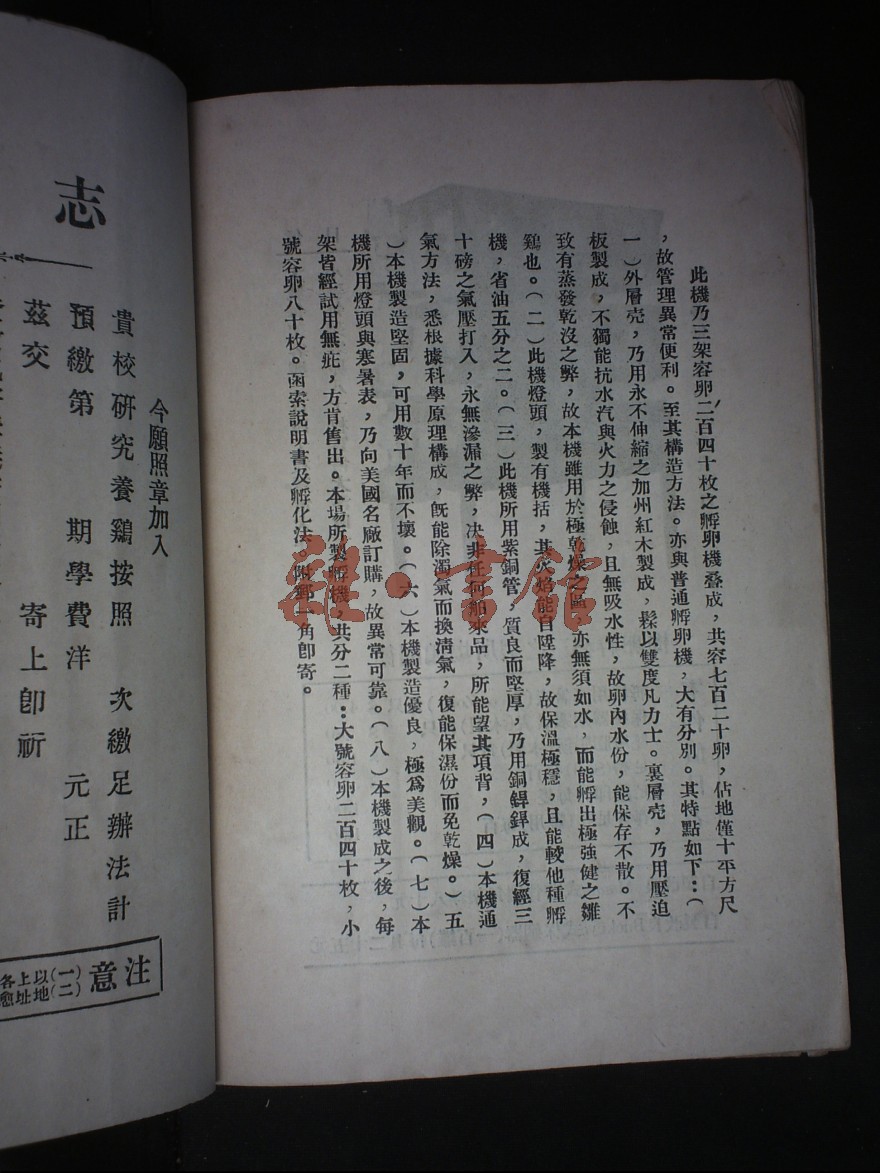 此機乃三架容卵二百四十枚之孵卵機叠成，共容七百二十卵，佔地僅十平方尺
，故管理異常便利。至其構造方法。亦與普通孵卵機，大有分別。其特點如下：（
一）外層壳，乃用永不伸縮之加州紅木製成，髹以雙度凡力士。裏層壳，乃用壓迫
板製成，不獨能抗水汽與火力之侵蝕，且無吸水性，故卵內水份，能保存不散。不
致有蒸發乾沒之弊，故本機雖用於極乾燥之區，亦無須如水，而能孵出極強健之雛
鷄也。（二）此機燈頭，製有機括，其火焰能自陞降，故保溫極穩，且能較他種孵
機，省油五分之二。（三）此機所用紫銅管，質良而堅厚，乃用銅銲銲成，復經三
十磅之氣壓打入，永無滲漏之弊，決非任何舶來品，所能望其項背，（四）本機通
氣方法，悉根據科學原理構成，旣能除濁氣而換淸氣，復能保濕份而免乾燥。）五
）本機製造堅固，可用數十年而不壞。（六）本機製造優良，極爲美觀。（七）本
機所用燈頭與寒暑表，乃向美國名廠訂購，故異常可靠。（八）本機製成之後，每
架皆經試用無疵，方肯售出。本場所製孵機，共分二種：大號容卵二百四十枚，小
號容卵八十枚。函索說明書及孵化法。附郵一角卽寄。
志
今願照章加入
貴校硏究養鷄按照 次繳足辦法計
預繳第 期學費洋 元正
茲交 寄上卽祈
注意
（一）以上各
（二）地址愈
雜·書館